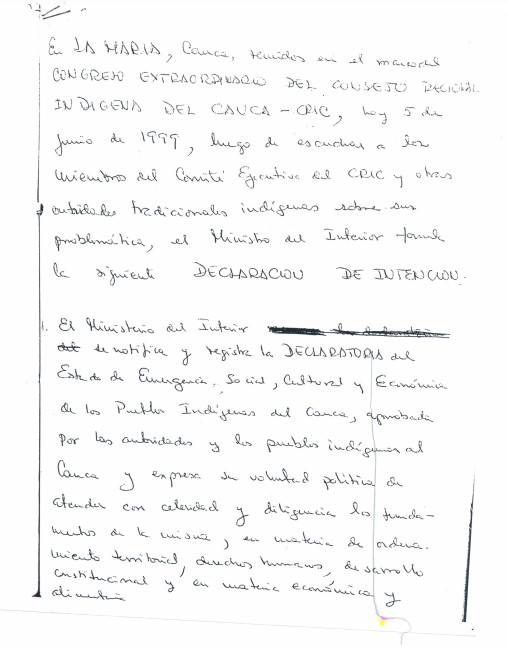 En LA MARIA, Cauca, reunidos en el marco del
CONGRESO EXTRAORDINARIO DEL CONSEJO REGIONAL
INDIGENA DEL CAUCA - CRIC, hoy 5 de
junio de 1999, luego de escuchar a los
miembros del Comité Ejecutivo del CRIC y otras
autoridades tradicionales indígenas sobre sus
problemática, el Ministro del Interior formula
la siguiente DECLARACION DE INTENCION.
1. El Ministerio del Interior
se notifica y registra la DECLARATORIA del
Estado de Emergencia, Social, Cultural y Económica
de los Pueblos Indígenas del Cauca, aprobada
por las autoridades y los pueblos indígenas del
Cauca y expresa su voluntad política de
atender con celeridad y diligencia los funda-
mentos de la misma, en materia de ordena-
miento territorial, derechos humanos, desarrollo
constitucional y en materia económica y